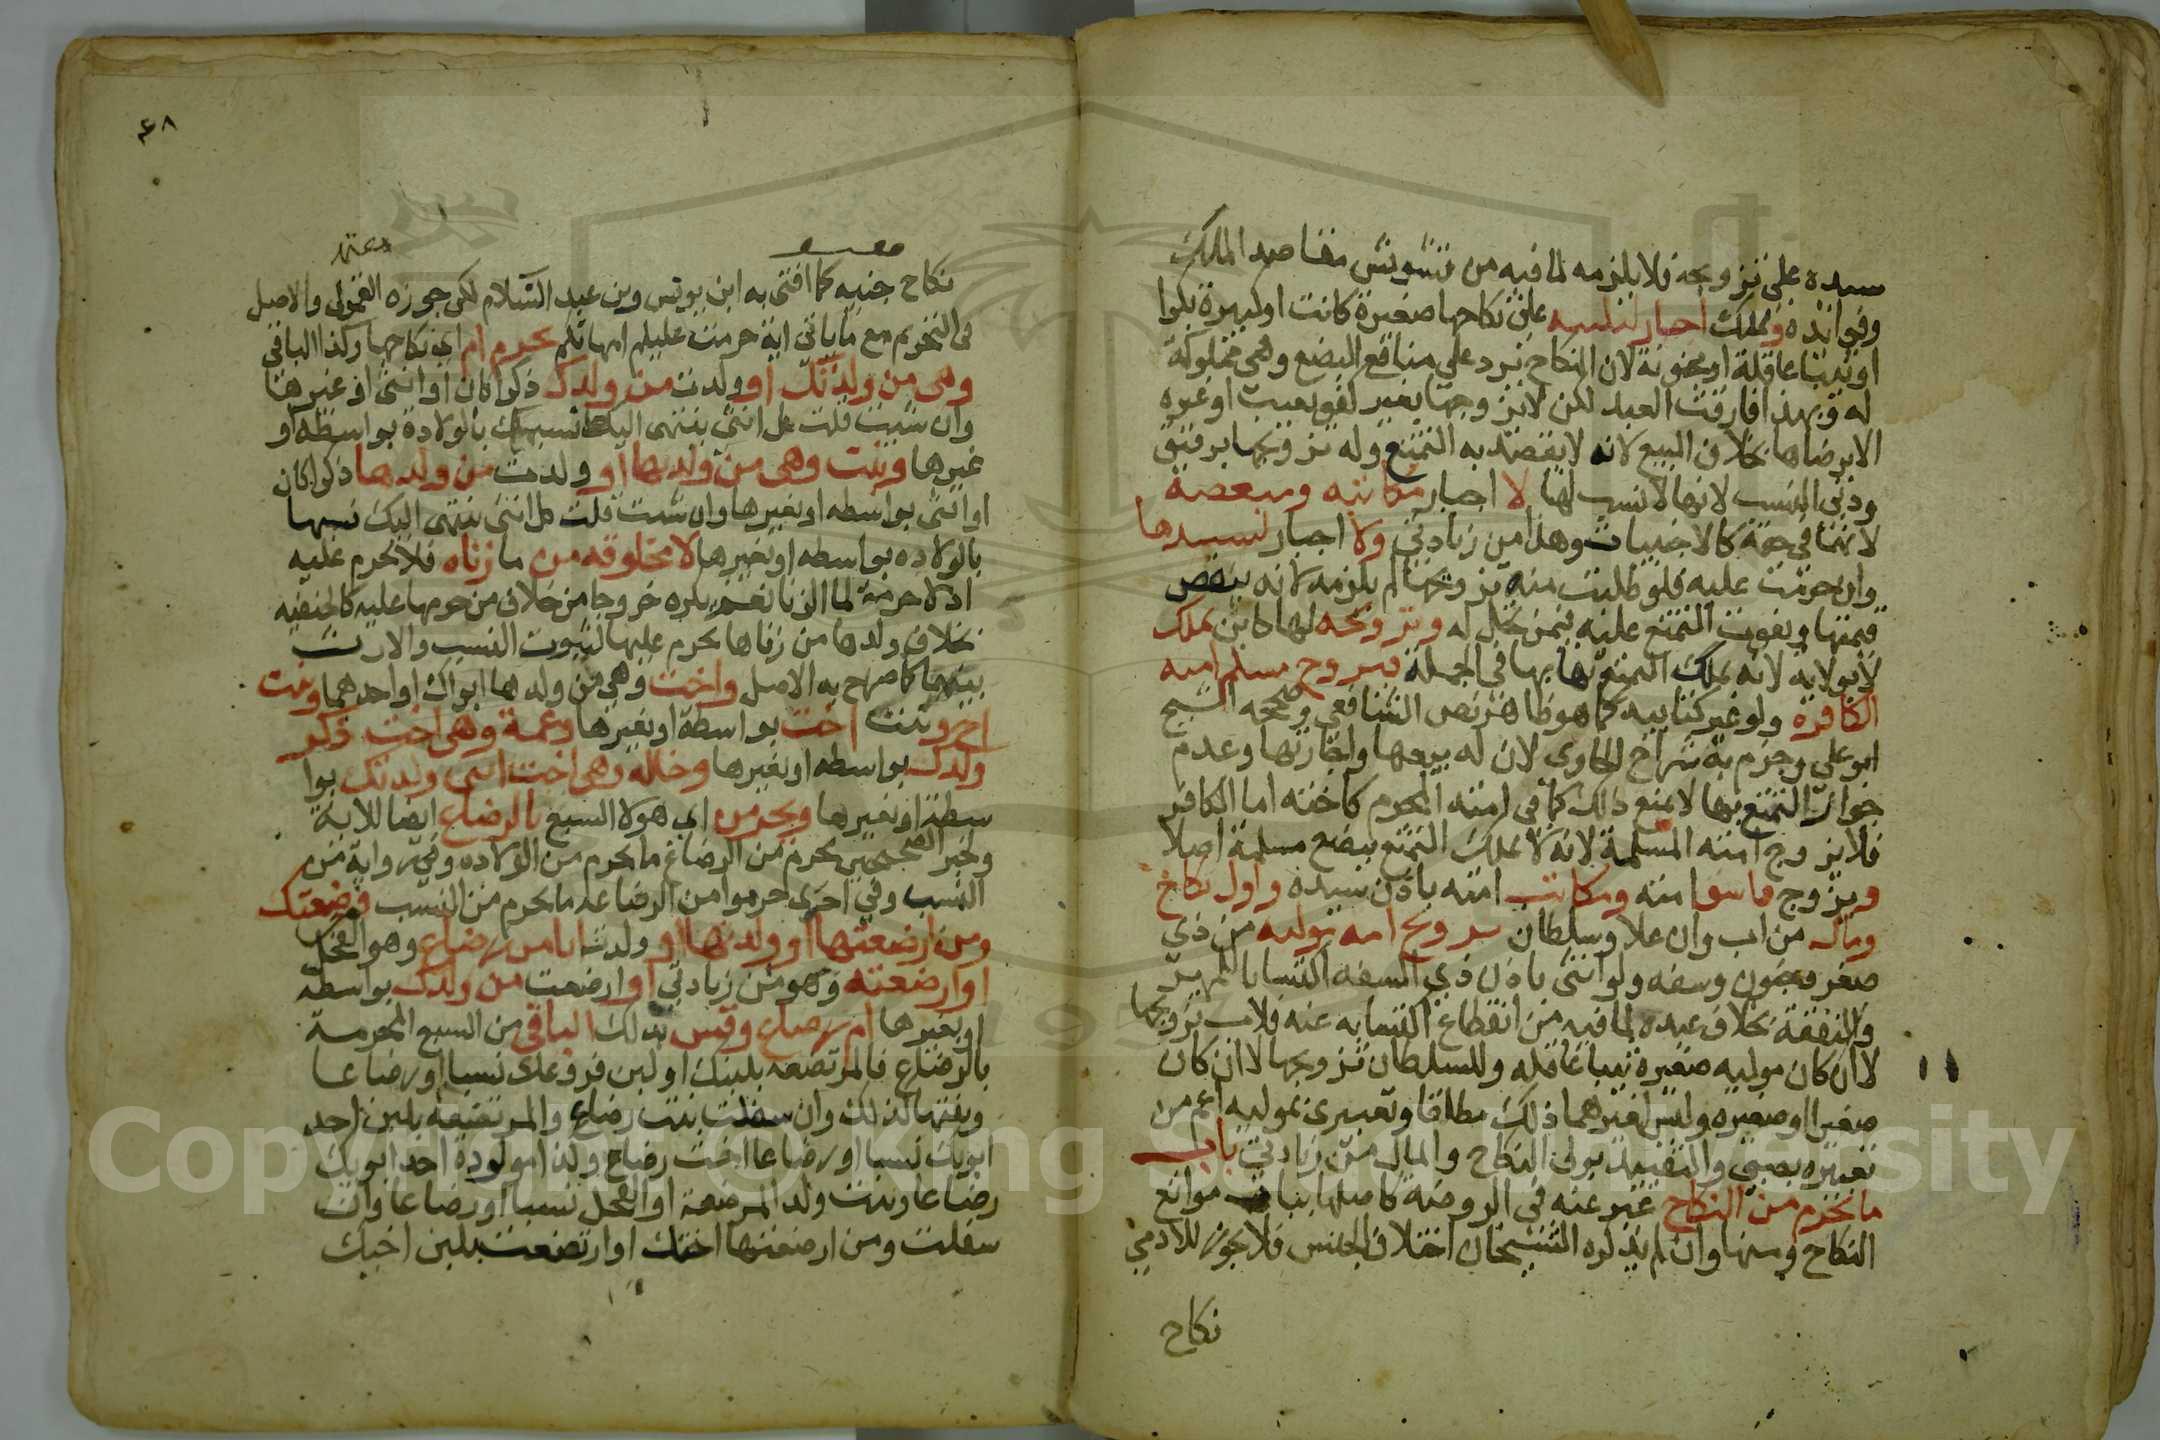 سيده على تزويجه فلا يلزمه لما فيه من تشويش مقاصد الملك
وفوائده ويملك اجبار لنسيه على نكاحها صغيرة كانت او كبيرة بكرا
او ثيبا عاقلة او مجنونة لان النكاح يرد على منافع البضع وهي مملوكة
له وبهذا فارقت العبد لكن لا يزوجها بغير كفو بعيب او غيره
الا برضاها بخلاف البيع لانه لا يقصد به التمتع وله تزويجها برقيق
ودني النسب لانها لا نسب لها لا اجبار مكاتبه ومبعضة
لانهما في حقه كالاجنبيات وهذا من زيادتي ولا اجبار لسيدها
وان حرمت عليه فلو طلبت منه تزويجها لم يلزمه لانه ينقص
قيمتها ويفوت التمتع عليه فيمن تحل له وتزويجه لها كاين بملك
لا بولايه لانه يملك التمتع بها في الجملة فيزوج مسلم امته
الكافره ولو غير كتابيه كما هو ظاهر نص الشافعي وصححه الشيخ
ابو علي وجزم به شراح الحاوي لان له بيعها واجارتها وعدم
جواز التمتع بها لا يمنع ذلك كما في امته المحرم كاخته اما الكافر
فلا يزوج امته المسلمة لانه لا يملك التمتع ببضع مسلمة اصلا
ويزوج فاسق امته ومكاتب امته باذن سيده ولولي نكاح
ومال من اب وان علا وسلطان تزويج امه موليه من ذي
صغر وجنون وسفه ولو انثى باذن ذي السفه اكتسابا للمهر
والنفقة بخلاف عبده لما فيه من انقطاع اكتسابه عنه فلاب تزويجها
لا ان كان موليه صغيرة ثيبا عاقله وللسلطان تزويجها لا ان كان
صغيرا او صغيره وليس لغيرهما ذلك مطلقا وتعبيري بموليه اعم من
تعبيره بصبي والتقييد بولي النكاح والمال من زيادتي باب
ما يحرم من النكاح عبر عنه في الروضة كاصلها بباب موانع
النكاح ومنها وان لم يذكره الشيخان اختلاف الجنس فلا يجوز للادمي
نكاح
٤٨
معتمد
نكاح جنيه كما افتى به ابن يونس وبن عبد السلام لكن جوزه القمولي والاصل
في التحريم مع ما ياتي اية حرمت عليكم امهاتكم يحرم ام اي نكاحها وكذا الباقي
وهي من ولدتك او ولدت من ولدك ذكرا كان او انثى او غيرها
وان شيت قلت كل انثى ينتهي اليها نسبك بالولادة بواسطة او
غيرها وبنت وهي من ولدتها او ولدت من ولدها ذكرا كان
او انثى بواسطه او بغيرها وان شيت قلت كل انثى ينتهي اليك نسبها
بالولاده بواسطه او بغيرها لا مخلوقه من ما زناه فلا تحرم عليه
اذ لا حرمة لما الزنا نعم يكره خروجا من خلاف من حرمها عليه كالحنفيه
بخلاف ولدها من زناها يحرم عليها لثبوت النسب والارث
بينهما كما صرح به الاصل واخت وهي من ولدها ابواك او احدهما وبنت
اخ وبنت اخت بواسطة او بغيرها وعمة وهي اخت ذكر
ولدك بواسطه او بغيرها وخاله وهي اخت انثى ولدتك بوا
سطة او بغيرها ويحرمن اي هولا السبع بالرضاع ايضا للاية
ولخبر الصحيحين يحرم من الرضاع ما يحرم من الولاده وفي رواية من
النسب وفي اخرى حرموا من الرضاعه ما يحرم من النسب فمرضعتك
ومن ارضعتها او ولدتها او ولدت ابا من رضاع وهو الفحل
او ارضعته وهو من زيادتي او ارضعت من ولدك بواسطه
او بغيرها ام رضاع وقس بذلك الباقي من السبع المحرمة
بالرضاع فالمرتضعه بلبنك او لبن فروعك نسبا او رضاعا
وبنتها كذلك وان سفلت بنت رضاع والمرتضعه بلبن احد
ابويك نسبا او رضاعا اخت رضاع وكذا مولودة احد ابويك
رضاعا وبنت ولد المرضعة او الفحل نسبا او رضاعا وان
سفلت ومن ارضعتها اختك او ارتضعت بلبن اخيك
Copyright © King Saud University